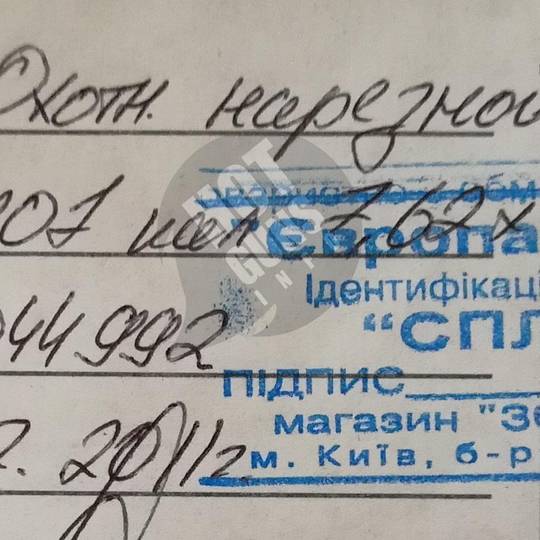 Охотн. нарезной
207 кал 7,62х
044992
2. 2011г.
"Європа
Ідентифікаці
"СПЛ
ПІДПИС
магазин "Зб
м. Київ, б-р
HOT GUNS INFO